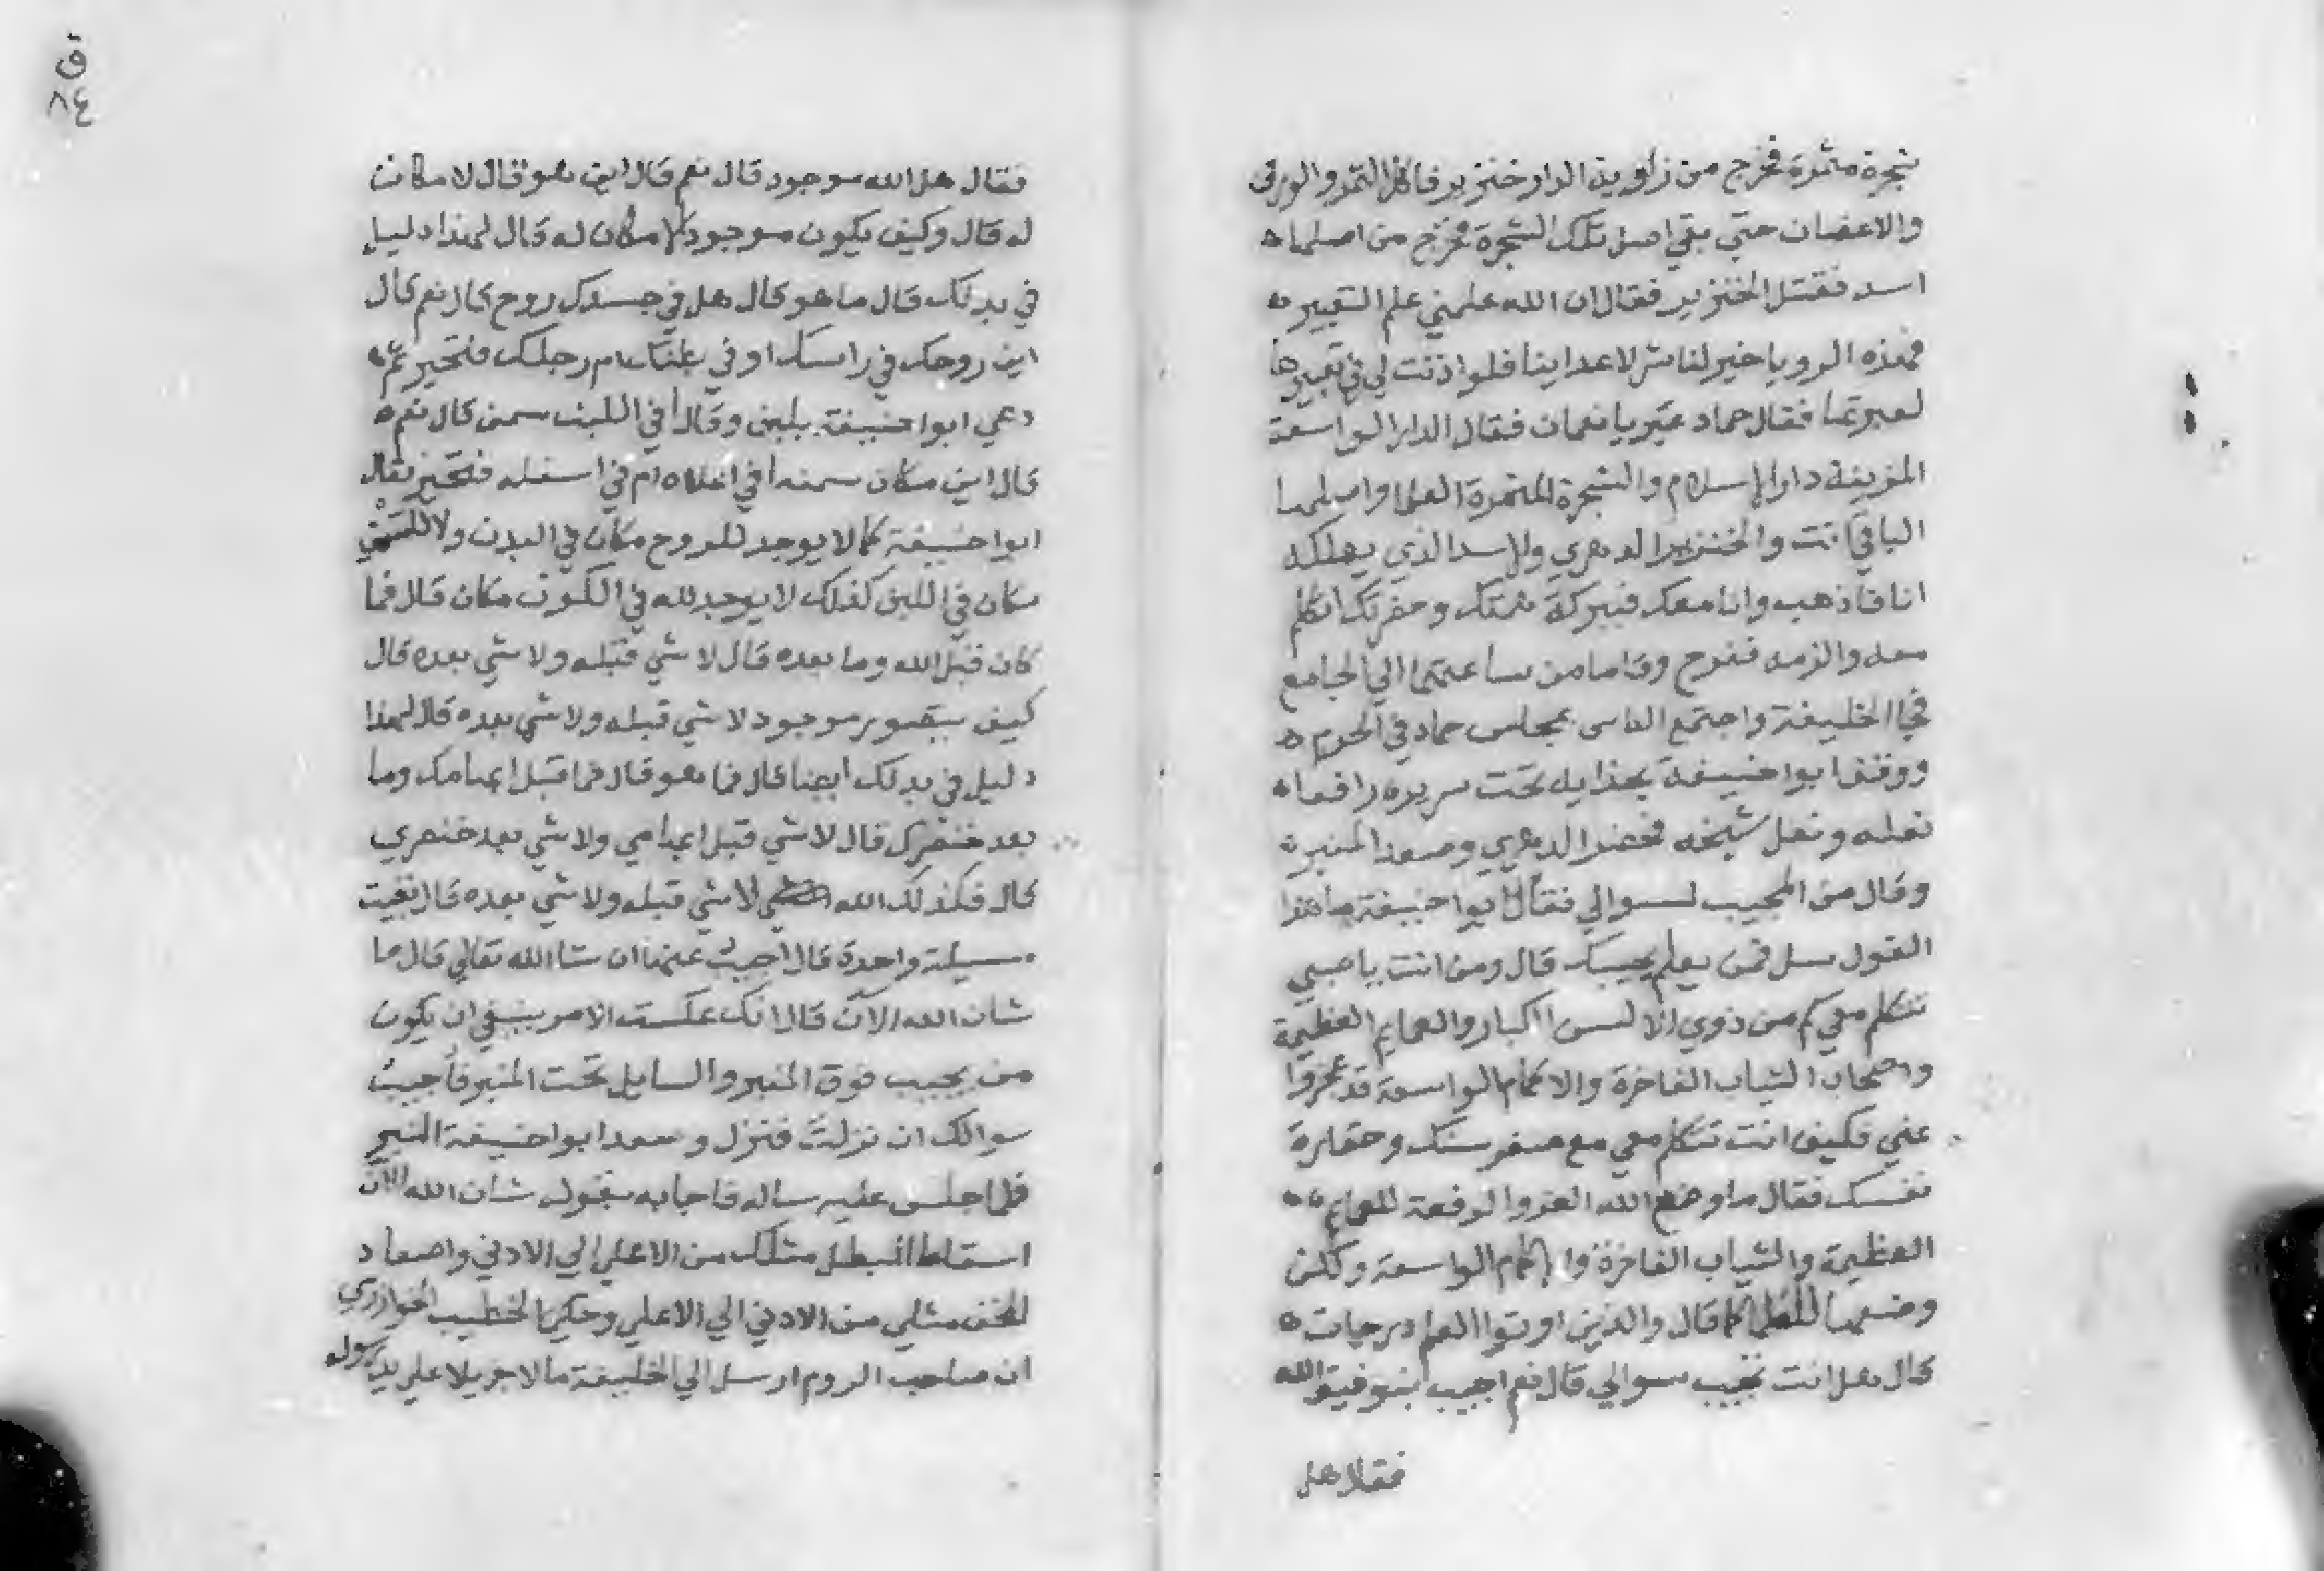 شجرة مثمرة فخرج من زاوية الدار خنزير فاكل الثمر والورق
والاغصان حتي بقي اصل تلك الشجرة فخرج من اصلها
اسد فقتل الخنزير فقال ان الله علمني علم التعبير
فهذه الرويا خير لنا شر لاعداينا فلو اذنت لي في تعبيرها
لعبرتها فقال حماد عبر يا نعمان فقال الدار الواسعة
المزينة دار الاسلام والشجرة المثمرة العلما واصلها
الباقي انت والخنزير الدهري والاسد الذي يهلكه
انا فاذهب وانا معك فببركة همتك وحضرتك اتكلم
معه والزمه ففرح وقاما من ساعتهما الي الجامع
فجا الخليفة واجتمع الناس بمجلس حماد في الحرم
ووقف ابوا حنيفة بحذايه تحت سريره رافعا
نعله ونعل شيخه فحضر الدهري وصعد المنبر
وقال من المجيب لسوالي فقال ابوا حنيفة ما هذا
القول سل فمن يعلم يجيبك قال ومن انت يا صبي
تتكلم معي كم من ذوي الالسن الكبار والعمايم العظيمة
واصحاب الثياب الفاخرة والاكمام الواسعة قد عجزوا
عني فكيف انت تتكلم معي مع صغر سنك وحقارة
نفسك فقال ما وضع الله العز والرفعة للعمايم
العظيمة والثياب الفاخرة والاكمام الواسعة ولكن
وضعها للعلما كما قال والذين اوتوا العلم درجات
قال هل انت تجيب سوالي قال نعم اجيب بتوفيق الله
فقال هل
ق
٨٤
فقال هل الله موجود قال نعم قال اين هو قال لا مكان
له قال وكيف يكون موجود لا مكان له قال لهذا دليل
في بدنك قال ما هو قال هل في جسدك روح قال نعم قال
اين روحك في راسك او في بطنك ام رجلك فتحير ثم
دعي ابوا حنيفة بلبن وقال أفي اللبن سمن قال نعم
قال اين مكان سمنه أفي اعلاه ام في اسفله فتحير فقال
ابوا حنيفة كما لا يوجد للروح مكان في البدن ولا للسمن
مكان في اللبن كذلك لا يوجد لله في الكون مكان قال فما
كان قبل الله وما بعده قال لا شي قبله ولا شي بعده قال
كيف يتصور موجود لا شي قبله ولا شي بعده قال لهذا
دليل في بدنك ايضا قال فما هو قال فما قبل ابهامك وما
بعد خنصرك قال لا شي قبل ابهامي ولا شي بعد خنصري
قال فكذلك الله لا شي قبله ولا شي بعده قال بقيت
مسيلة واحدة قال اجيب عنها ان شا الله تعالي قال ما
شان الله الآن قال انك عكست الامر ينبغي ان يكون
من يجيب فوق المنبر والسايل تحت المنبر فأجيب
سوالك ان نزلت فنزل وصعد ابوا حنيفة المنبر
فلما جلس عليه ساله فاجابه بقوله شان الله الآن
اسقاط المبطل مثلك من الاعلي الي الادني واصعاد
المحق مثلي من الادني الي الاعلي وحكي الخطيب الخوارزمي
ان صاحب الروم ارسل الي الخليفة مالا جزيلا علي يد رسوله